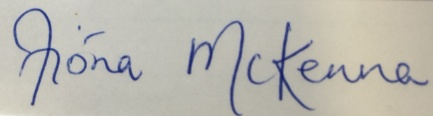 Fíóna McKenna